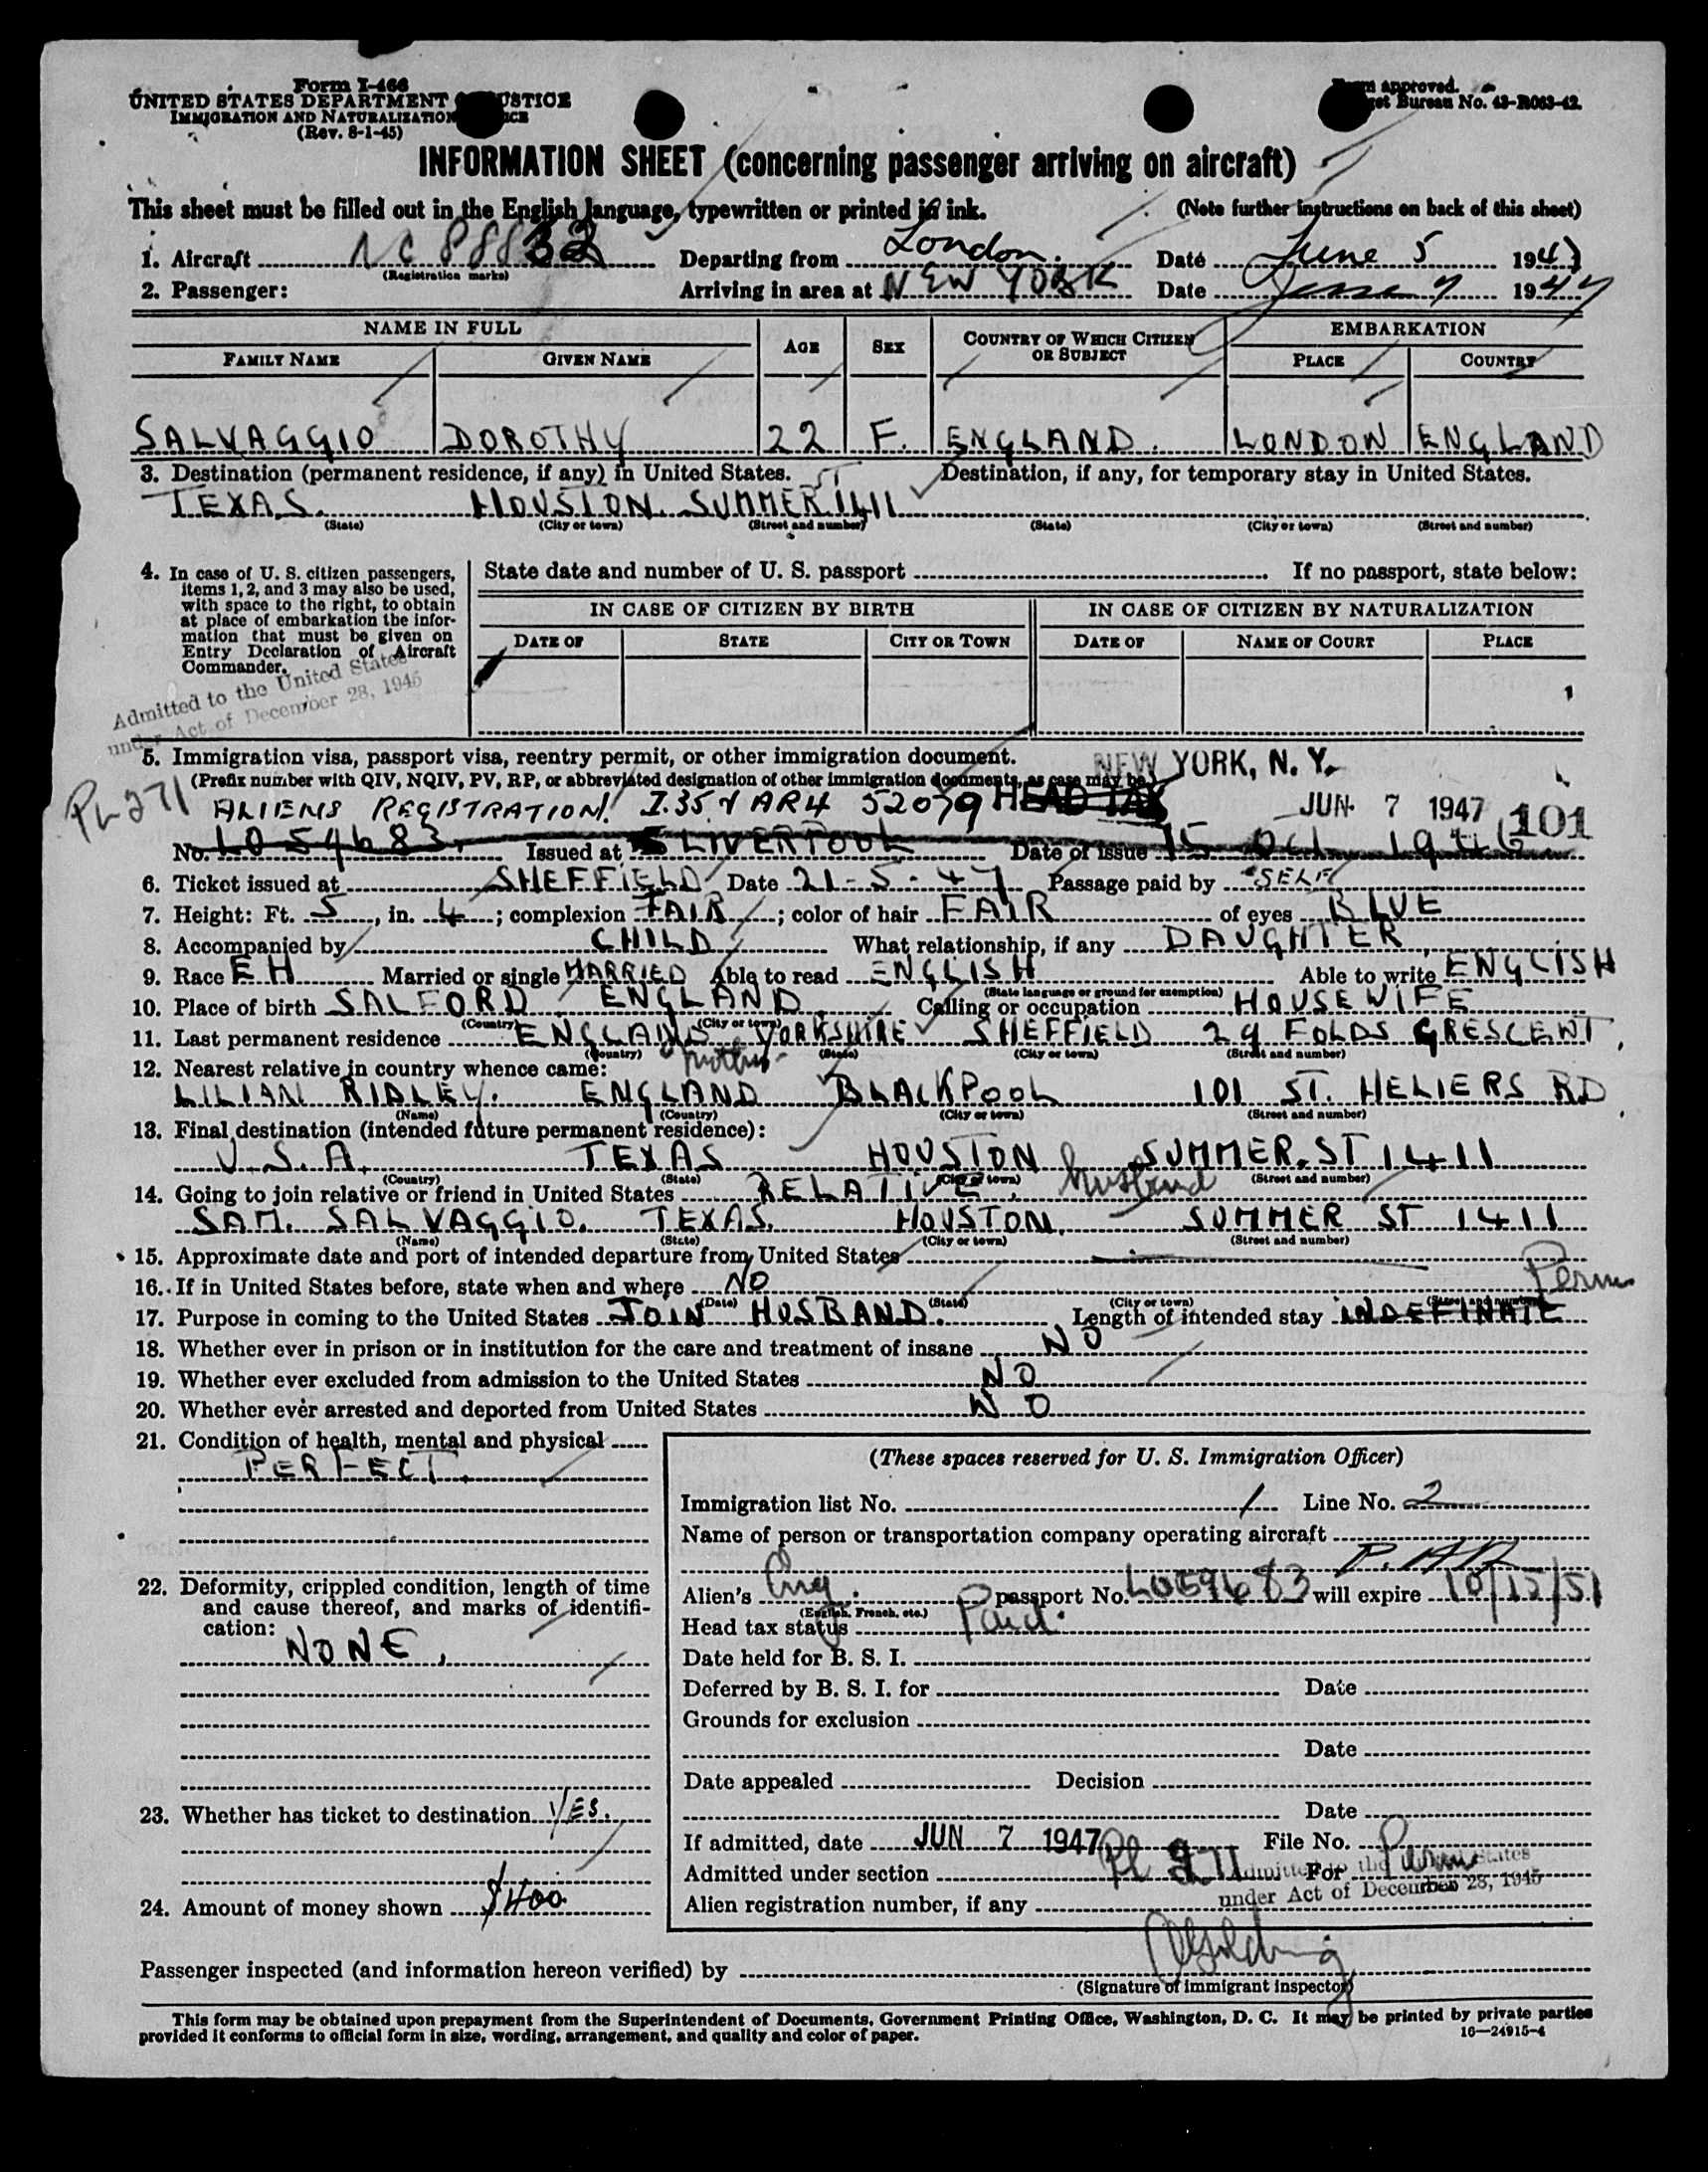 Form I-466
UNITED STATES DEPARTMENT OF JUSTICE
IMMIGRATION AND NATURALIZATION SERVICE
(Rev. 8-1-45)
Form approved.
Budget Bureau No. 43-R063-42.
INFORMATION SHEET (concerning passenger arriving on aircraft)
This sheet must be filled out in the English language, typewritten or printed in ink. (Note further instructions on back of this sheet)
1. Aircraft NC 88832 Departing from London. Date June 5 1947
(Registration marks)
2. Passenger: Arriving in area at NEW YORK Date June 7 1947
NAME IN FULL AGE SEX COUNTRY OF WHICH CITIZEN OR SUBJECT EMBARKATION
FAMILY NAME GIVEN NAME PLACE COUNTRY
SALVAGGIO DOROTHY 22 F. ENGLAND. LONDON ENGLAND
3. Destination (permanent residence, if any) in United States. Destination, if any, for temporary stay in United States.
TEXAS. HOUSTON. SUMMER ST 1411
(State) (City or town) (Street and number) (State) (City or town) (Street and number)
4. In case of U. S. citizen passengers, items 1, 2, and 3 may also be used, with space to the right, to obtain at place of embarkation the information that must be given on Entry Declaration of Aircraft Commander.
State date and number of U. S. passport If no passport, state below:
IN CASE OF CITIZEN BY BIRTH IN CASE OF CITIZEN BY NATURALIZATION
DATE OF STATE CITY OR TOWN DATE OF NAME OF COURT PLACE
Admitted to the United States
under Act of December 28, 1945
5. Immigration visa, passport visa, reentry permit, or other immigration document.
(Prefix number with QIV, NQIV, PV, RP, or abbreviated designation of other immigration documents, as case may be)
NEW YORK, N. Y.
PL 271 ALIENS REGISTRATION! I.35 & AR4 52079 HEAD TAX JUN 7 1947 101
No. LO 59683. Issued at LIVERPOOL Date of issue 15 Oct 1946
6. Ticket issued at SHEFFIELD Date 21-5-47 Passage paid by SELF
7. Height: Ft. 5, in. 4; complexion FAIR; color of hair FAIR of eyes BLUE
8. Accompanied by CHILD What relationship, if any DAUGHTER
9. Race EH Married or single MARRIED Able to read ENGLISH Able to write ENGLISH
(State language or ground for exemption)
10. Place of birth SALFORD ENGLAND Calling or occupation HOUSEWIFE
(Country) (City or town)
11. Last permanent residence ENGLAND YORKSHIRE SHEFFIELD 29 FOLDS CRESCENT
(Country) (State) (City or town) (Street and number)
12. Nearest relative in country whence came: mother
LILIAN RIDLEY. ENGLAND BLACKPOOL 101 ST. HELIERS RD
(Name) (Country) (City or town) (Street and number)
13. Final destination (intended future permanent residence):
U.S.A. TEXAS HOUSTON SUMMER. ST 1411
(Country) (State) (City or town) (Street and number)
14. Going to join relative or friend in United States RELATIVE. husband
SAM. SALVAGGIO. TEXAS. HOUSTON. SUMMER ST 1411
(Name) (State) (City or town) (Street and number)
15. Approximate date and port of intended departure from United States
16. If in United States before, state when and where NO
(Date) (State) (City or town) (Street and number)
Perm
17. Purpose in coming to the United States JOIN HUSBAND. Length of intended stay INDEFINATE
18. Whether ever in prison or in institution for the care and treatment of insane NO
19. Whether ever excluded from admission to the United States NO
20. Whether ever arrested and deported from United States NO
21. Condition of health, mental and physical
PERFECT.
22. Deformity, crippled condition, length of time and cause thereof, and marks of identification:
NONE.
23. Whether has ticket to destination YES.
24. Amount of money shown $400
(These spaces reserved for U. S. Immigration Officer)
Immigration list No. 1 Line No. 2
Name of person or transportation company operating aircraft
Alien's Eng. passport No. LO59683 will expire 10/15/51
(English, French, etc.)
Head tax status Paid.
Date held for B. S. I.
Deferred by B. S. I. for Date
Grounds for exclusion
Date
Date appealed Decision
Date
If admitted, date JUN 7 1947 File No.
Admitted under section Pl 271 For Perm
Admitted to the United States
under Act of December 28, 1945
Alien registration number, if any
Passenger inspected (and information hereon verified) by
(Signature of immigrant inspector)
This form may be obtained upon prepayment from the Superintendent of Documents, Government Printing Office, Washington, D. C. It may be printed by private parties
provided it conforms to official form in size, wording, arrangement, and quality and color of paper. 16—24915-4